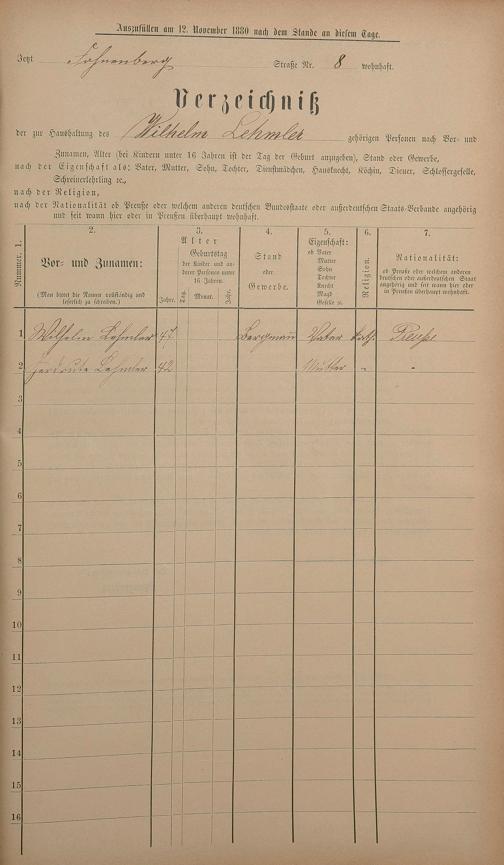 Auszufüllen am 12. November 1880 nach dem Stande an diesem Tage.
Jetzt Fohnenberg Straße Nr. 8 wohnhaft.
Verzeichniß
der zur Haushaltung des Wilhelm Lehmler gehörigen Personen nach Vor- und
Zunamen, Alter (bei Kindern unter 16 Jahren ist der Tag der Geburt anzugeben), Stand oder Gewerbe,
nach der Eigenschaft als: Vater, Mutter, Sohn, Tochter, Dienstmädchen, Hausknecht, Köchin, Diener, Schlossergeselle,
Schreinerlehrling ꝛc.,
nach der Religion,
nach der Nationalität ob Preuße oder welchem anderen deutschen Bundesstaate oder außerdeutschen Staats-Verbande angehörig
und seit wann hier oder in Preußen überhaupt wohnhaft.
Nummer. 1.
2.
Vor- und Zunamen:
(Man bittet die Namen vollständig und
leserlich zu schreiben.)
3.
Alter
Geburtstag
der Kinder und an-
derer Personen unter
16 Jahren.
Jahre.
Tag.
Monat.
Jahr.
4.
Stand
oder
Gewerbe.
5.
Eigenschaft:
ob Vater
Mutter
Sohn
Tochter
Knecht
Magd
Geselle ꝛc.
6.
Religion.
7.
Nationalität:
ob Preuße oder welchem anderen
deutschen oder außerdeutschen Staat
angehörig und seit wann hier oder
in Preußen überhaupt wohnhaft.
1 Wilhelm Lehmler 47 Bergmann Vater kath. Preuße
2 Lehmler 42 Mutter " "
3
4
5
6
7
8
9
10
11
12
13
14
15
16